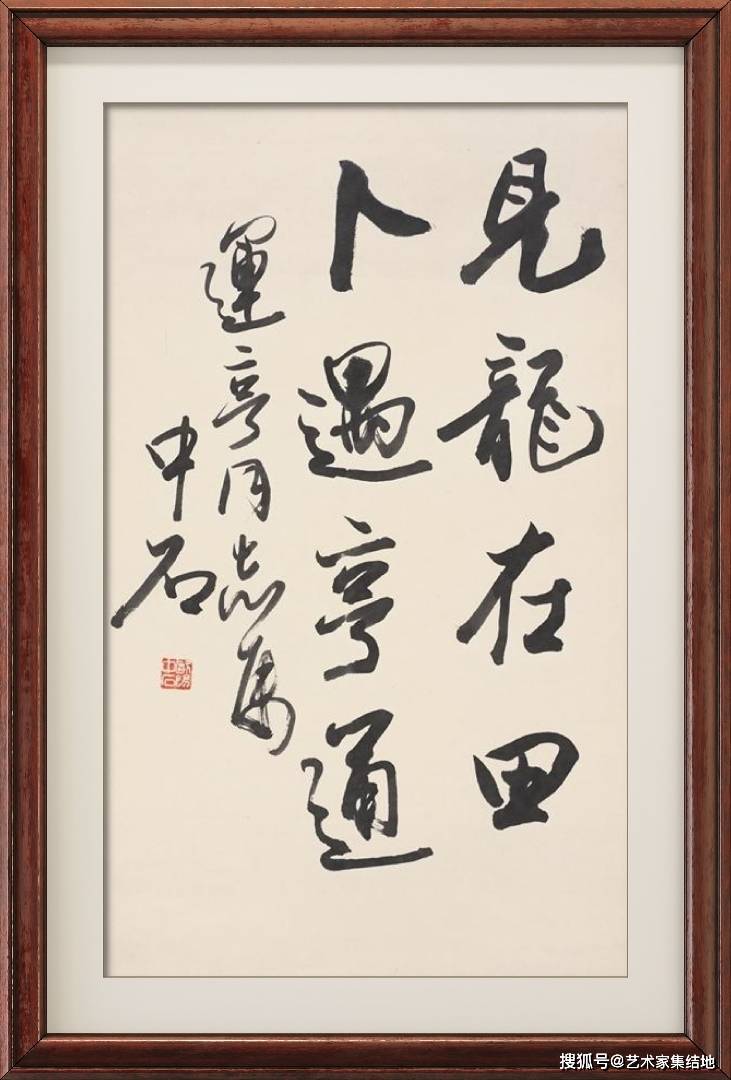 見龍在田
卜遇亨通
運亨同志属
中石
歐陽中石
搜狐号@艺术家集结地